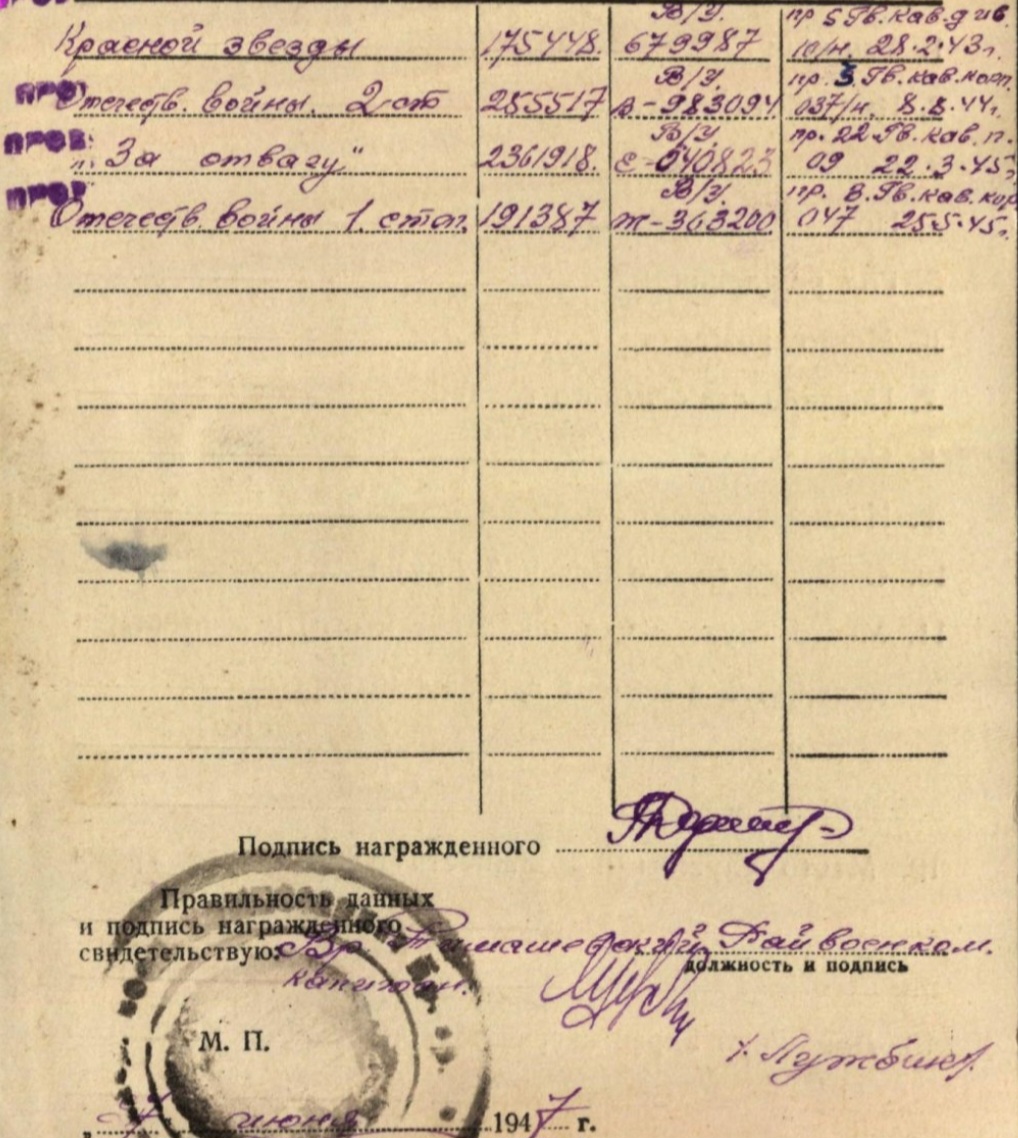 В/У. пр 5 Гв. Кав. див.
Красной звезды 175448. 679987 10/н. 28.2.43г.
В/У. пр. 3 Гв. Кав.
ПРОВ Отечеств. войны. 2 ст 255517 В-983094 037/н. 8.8.44г.
В/У. пр. 22 Гв. Кав. п.
ПРОВ. „За отвагу" 2361918. Е-040823 09 22.3.45г.
ПРОВ В/У. пр. 3. Гв. Кав. кор
Отечеств. войны 1. степ. 191387 Ж-363200 047 25.5.45г.
Подпись награжденного
Правильность данных
и подпись награжденного
свидетельствую: Вр Тимашевский Райвоенком.
должность и подпись
капитан.
М. П.
„7" июня 1947 г.